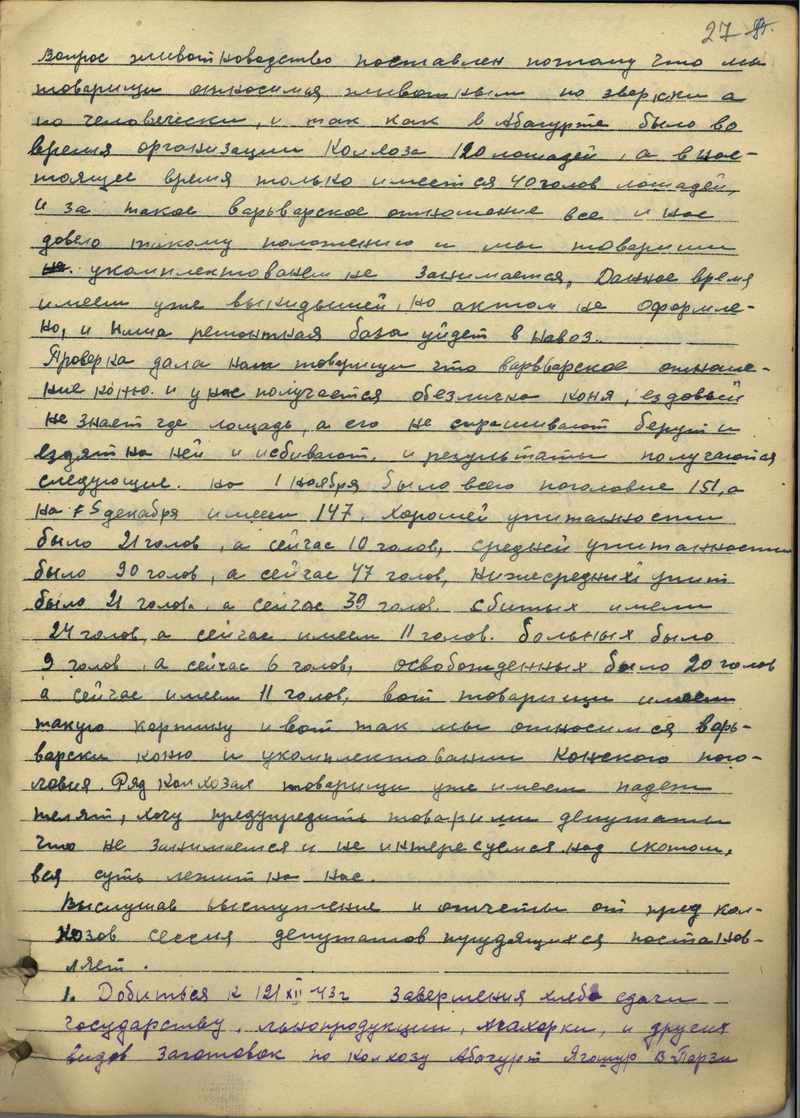 27
Вопрос животноводство поставлен потому что мы
товарищи относимся животным по зверски а
по человечески, и так как в Абагурте было во
время организации колхоза 120 лошадей, а в нас-
тоящее время только имеется 40 голов лошадей,
и за такое варьварское отношение все и нас
довело такому положению и мы товарищи
укомплектованем не занимаемся, Данное время
имеем уже выкидышей, но актом не оформле-
но, и наша ремонтная база уйдет в навоз.
Проверка дала нам товарищи что варварьское отноше-
ние коню. и у нас получается обезличка коня, ездовый
не знает где лошадь, а его не спрашивают берут и
ездят на ней и избивают, и результаты получаются
следующие. на 1 ноября было всего поголовие 151, а
на 5 декабря имеем 147. хорошей упитанности
было 21 голов, а сейчас 10 голов, средней упитанности
было 90 голов, а сейчас 47 голов, нижесредних упит
было 21 голов, а сейчас 39 голов. сбитых имели
24 голов, а сейчас имеем 11 голов. больных было
9 голов, а сейчас 6 голов, освобожденных было 20 голов
а сейчас имеем 11 голов, вот товарищи имеем
такую картину и вот так мы относимся варь-
варски коню и укомплектовании конского пого-
ловия. Ряд колхозах товарищи уже имеем падеж
телят, хочу предупредить товарищи депутаты
что не занимаемся и не интересуемся над скотом,
вся суть лежит на нас.
Выслушав выступление и отчеты от пред кол-
хозов сессия депутатов трудящихся постанов-
ляет.
1. Добиться к 12/XII 43 г завершения хлебо сдачи
государству, льнопродукции, махорки, и других
видов заготовок по колхозу Абагурт Ягошур В-Парзи